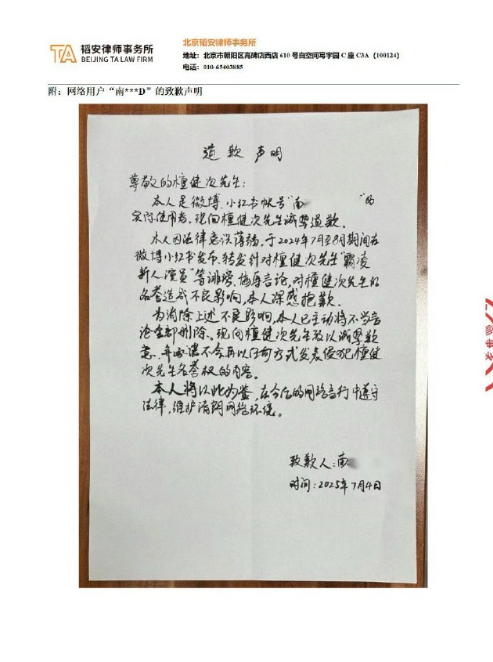 TA 韬安律师事务所
BEIJING TA LAW FIRM
北京韬安律师事务所
地址：北京市朝阳区高碑店西店 610 号自空间写字园 C 座 C3A（100124）
电话：010-65403885
附：网络用户“南***D”的致歉声明
道歉声明
尊敬的檀健次先生：
本人是微博、小红书帐号“南 ”的
实际使用者，现向檀健次先生诚挚道歉。
本人因法律意识薄弱，于2024年7月至8月期间在
微博小红书发布、转发针对檀健次先生“霸凌
新人演员”等诽谤、侮辱言论，对檀健次先生的
名誉造成不良影响，本人深感抱歉。
为消除上述不良影响，本人已主动将不当言
论全部删除、现向檀健次先生致以诚挚歉
意，并承诺不会再以任何方式发表侵犯檀健
次先生名誉权的内容。
本人将以此为鉴，在今后的网络言行中遵守
法律，维护清朗网络环境。
致歉人：南
时间：2025年7月4日